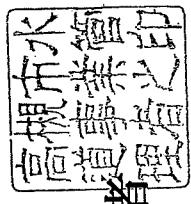 高槻市水
道事業管
理者之印